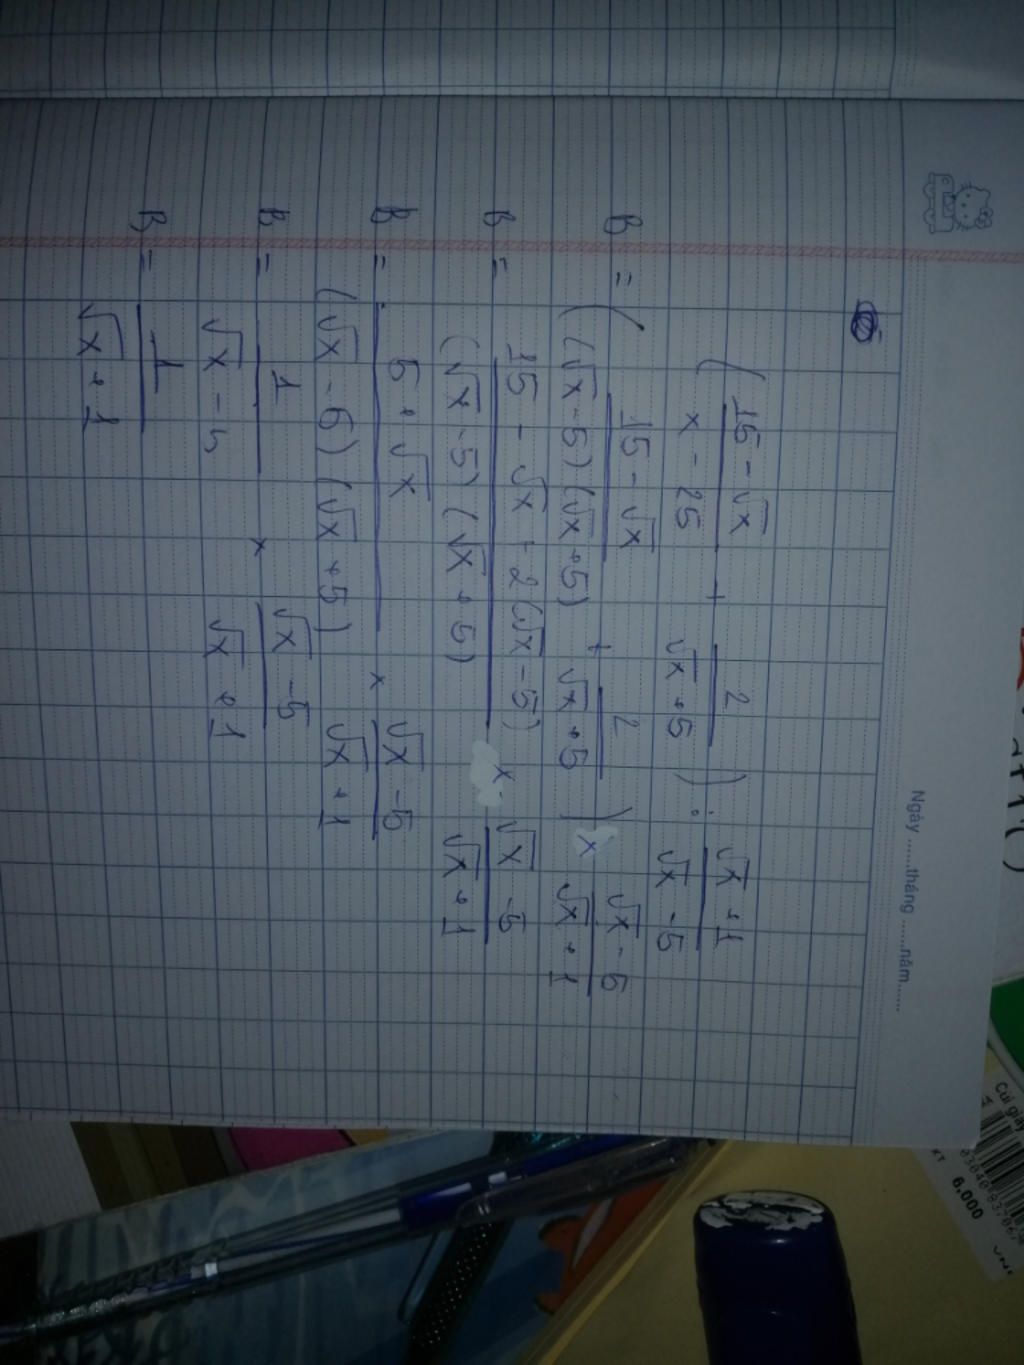 Ngày ......tháng ......năm......
( (15 - √x)/(x - 25) + 2/(√x + 5) ) : (√x + 1)/(√x - 5)
B = ( (15 - √x)/((√x - 5)(√x + 5)) + 2/(√x + 5) ) x (√x - 5)/(√x + 1)
B = (15 - √x + 2(√x - 5))/((√x - 5)(√x + 5)) x (√x - 5)/(√x + 1)
B = (5 + √x)/((√x - 5)(√x + 5)) x (√x - 5)/(√x + 1)
B = 1/(√x - 5) x (√x - 5)/(√x + 1)
B = 1/(√x + 1)
6.000